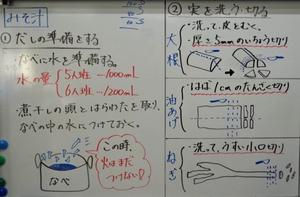 みそ汁
① だしの準備をする。
なべに水を準備する。
水の量
5人班 ― 1000ml
6人班 ― 1200ml
煮干しの頭とはらわたを取り、
なべの中の水につけておく。
この時、
火はまだ
つけない!
なべ
② 実を洗う・切る
大根
・洗って、皮をむく。
・厚さ5mmのいちょう切り
油あげ
・はば1cmのたんざく切り
ねぎ
・洗って、うすい小口切り